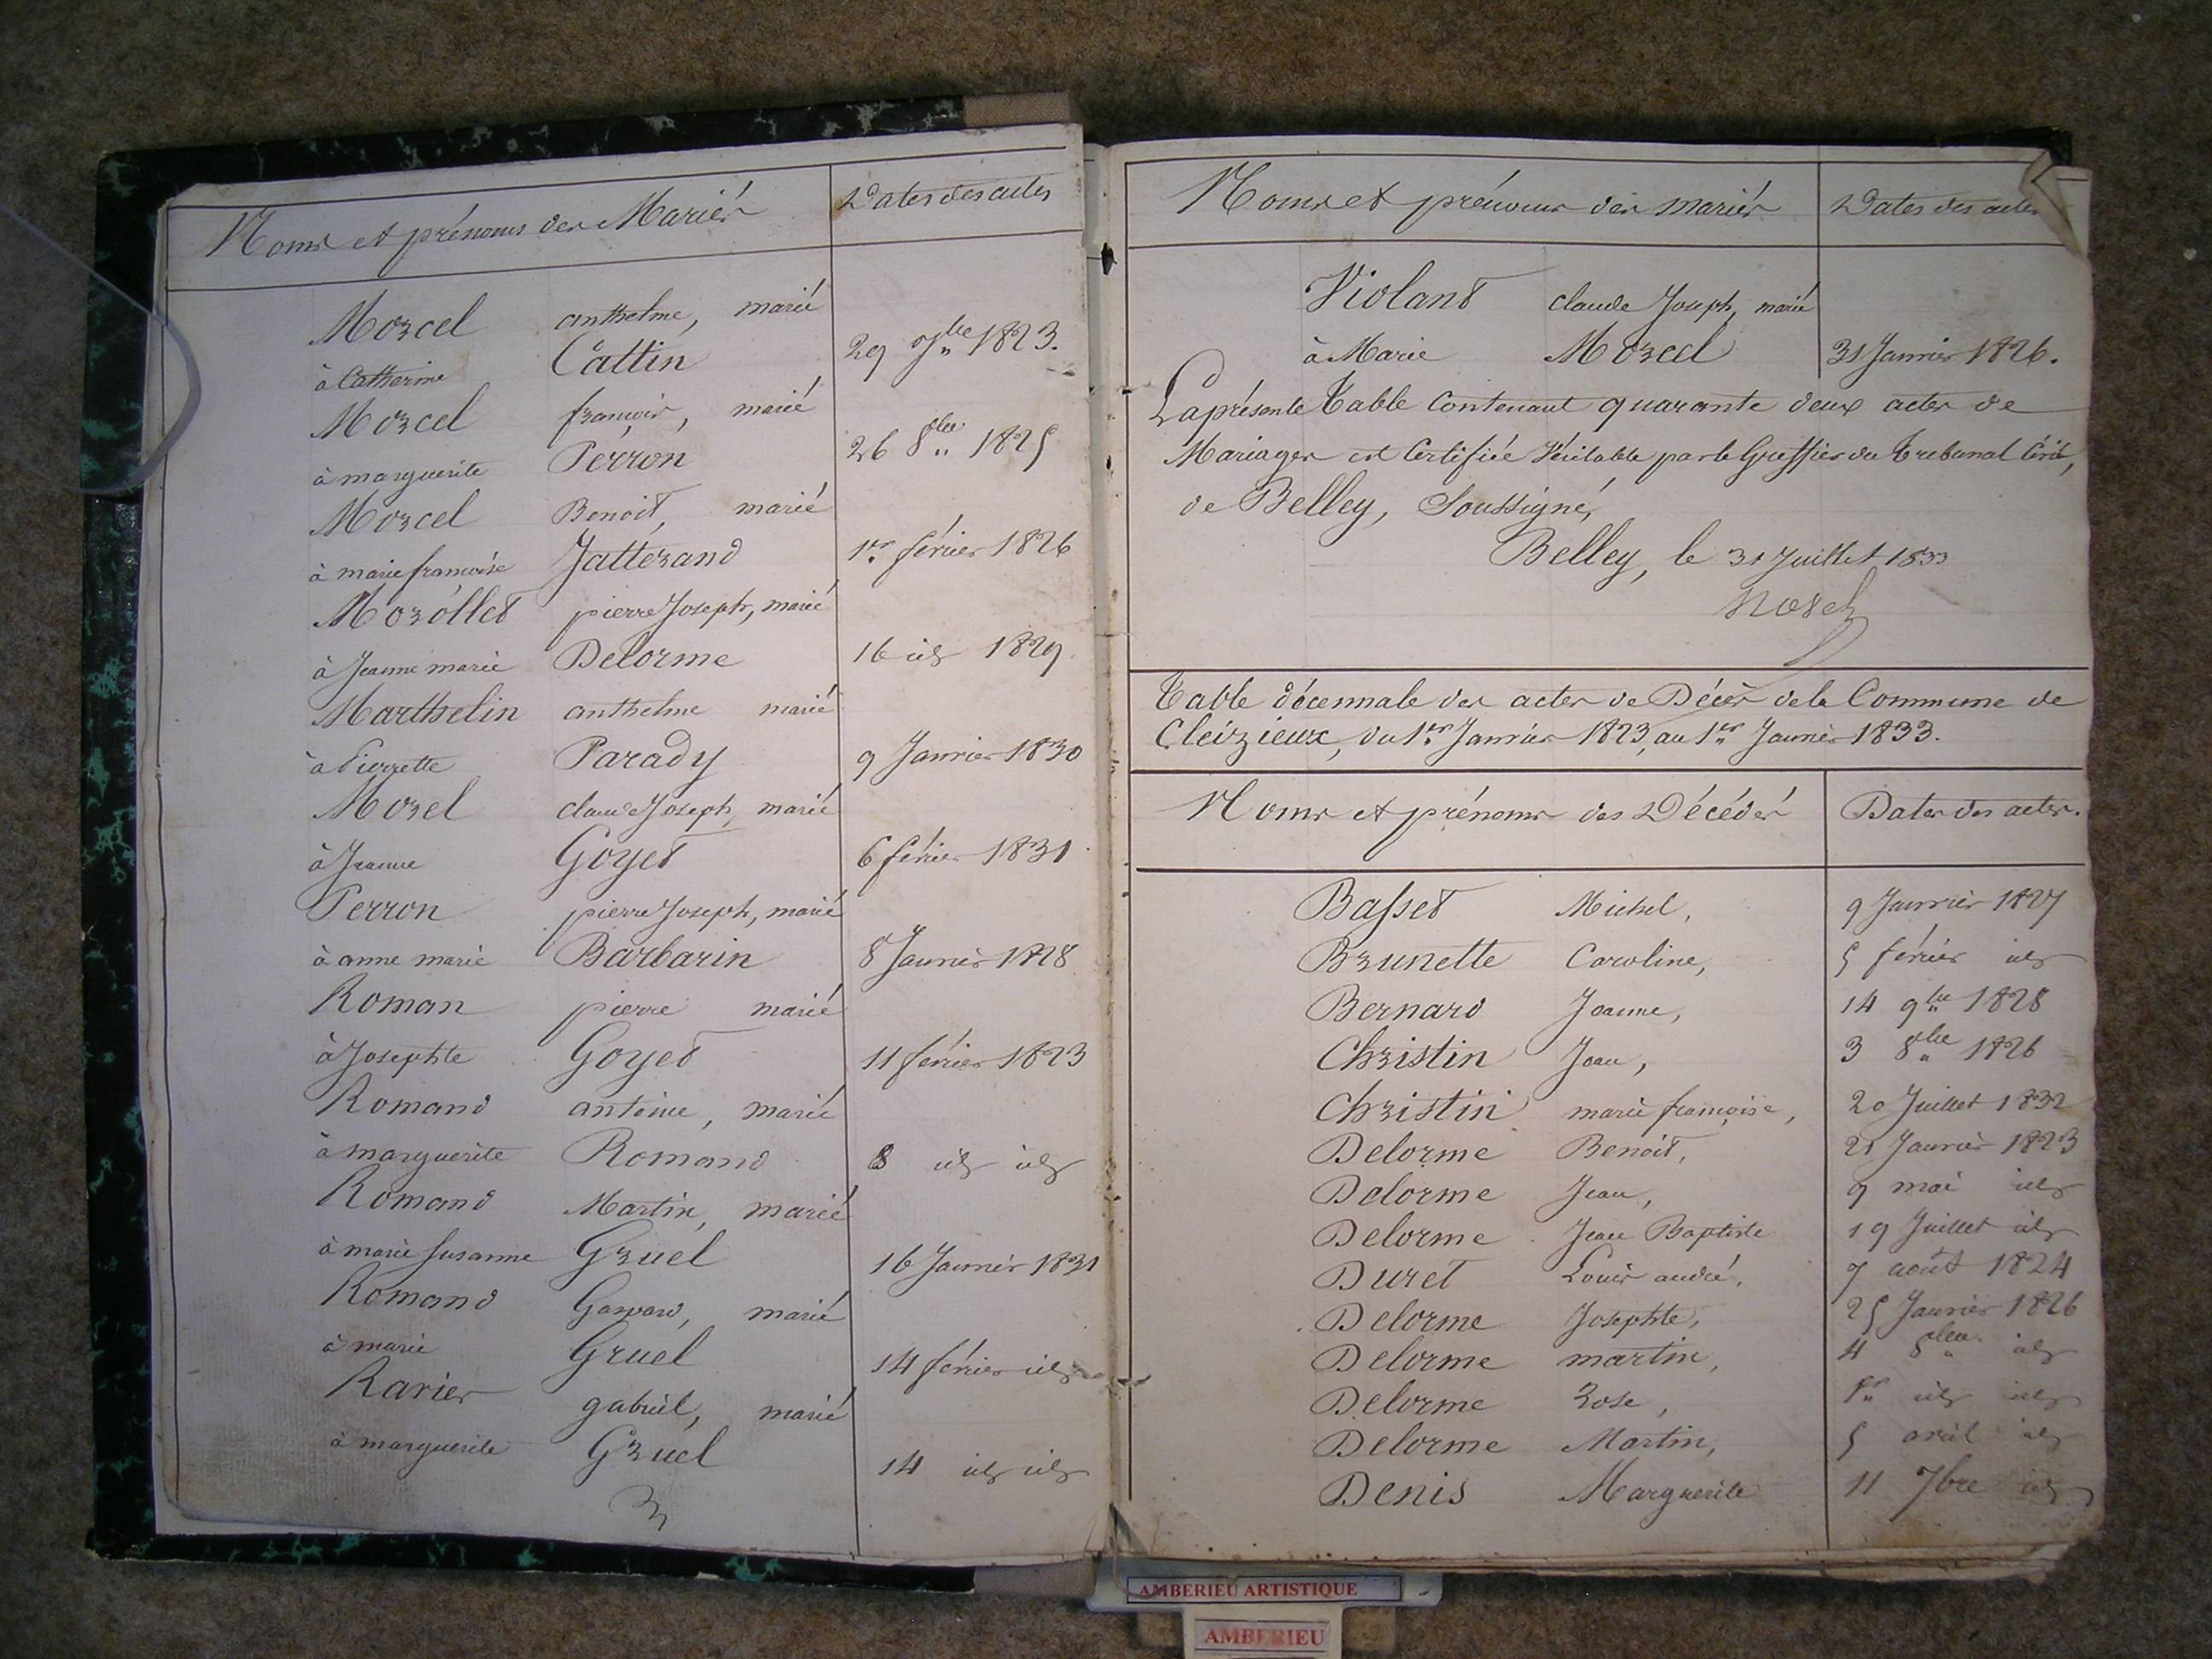 Noms et prénoms des Mariés
Dates des actes
Morcel anthelme, marié
à Catherine Cattin 29 7bre 1823.
Morcel françois, marié
à marguerite Perron 26 8bre 1825
Morcel Benoit, marié
à marie françoise Jatterand 1er février 1826
Morollet pierre Joseph, marié
à Jeanne marie Delorme 16 id 1829.
Marthelin anthelme marié
à Pierrette Parady 9 Janvier 1830
Morel claude Joseph, marié
à Jeanne Goyet 6 février 1831
Perron pierre Joseph, marié
à anne marie Barbarin 8 Janvier 1828
Roman pierre marié
à Josephte Goyet 11 février 1823
Romand antoine, marié
à marguerite Romand 8 id id
Romand Martin, marié
à marie susanne Gruel 16 Janvier 1831
Romand Gaspard, marié
à marie Gruel 14 février id
Ravier gabriel, marié
à marguerite Gruel 14 id id
Noms et prénoms des mariés
Dates des actes
Violant claude Joseph, marié
à Marie Morcel 31 Janvier 1826.
La présente Table Contenant quarante deux actes de
Mariages est Certifiée Véritable par le Greffier du Tribunal Civil,
de Belley, Soussigné,
Belley, le 31 Juillet 1833
Table décennale des actes de Décès de la Commune de
Cleizieux, du 1er Janvier 1823, au 1er Janvier 1833.
Noms et prénoms des Décédés
Dates des actes.
Basset Michel, 9 Janvier 1827
Brunette Caroline, 5 février id
Bernard Jeanne, 14 9bre 1828
Christin Jean, 3 8bre 1826
Christin marie françoise, 20 Juillet 1832
Delorme Benoit, 21 Janvier 1823
Delorme Jean, 9 mai id
Delorme Jean Baptiste 19 Juillet id
Duret Louis andré, 7 août 1824
Delorme Josephte, 25 Janvier 1826
Delorme martin, 4 8bre id
Delorme Rose, 1er id id
Delorme Martin, 5 avril id
Denis Marguerite 11 7bre id
AMBERIEU ARTISTIQUE
AMBERIEU